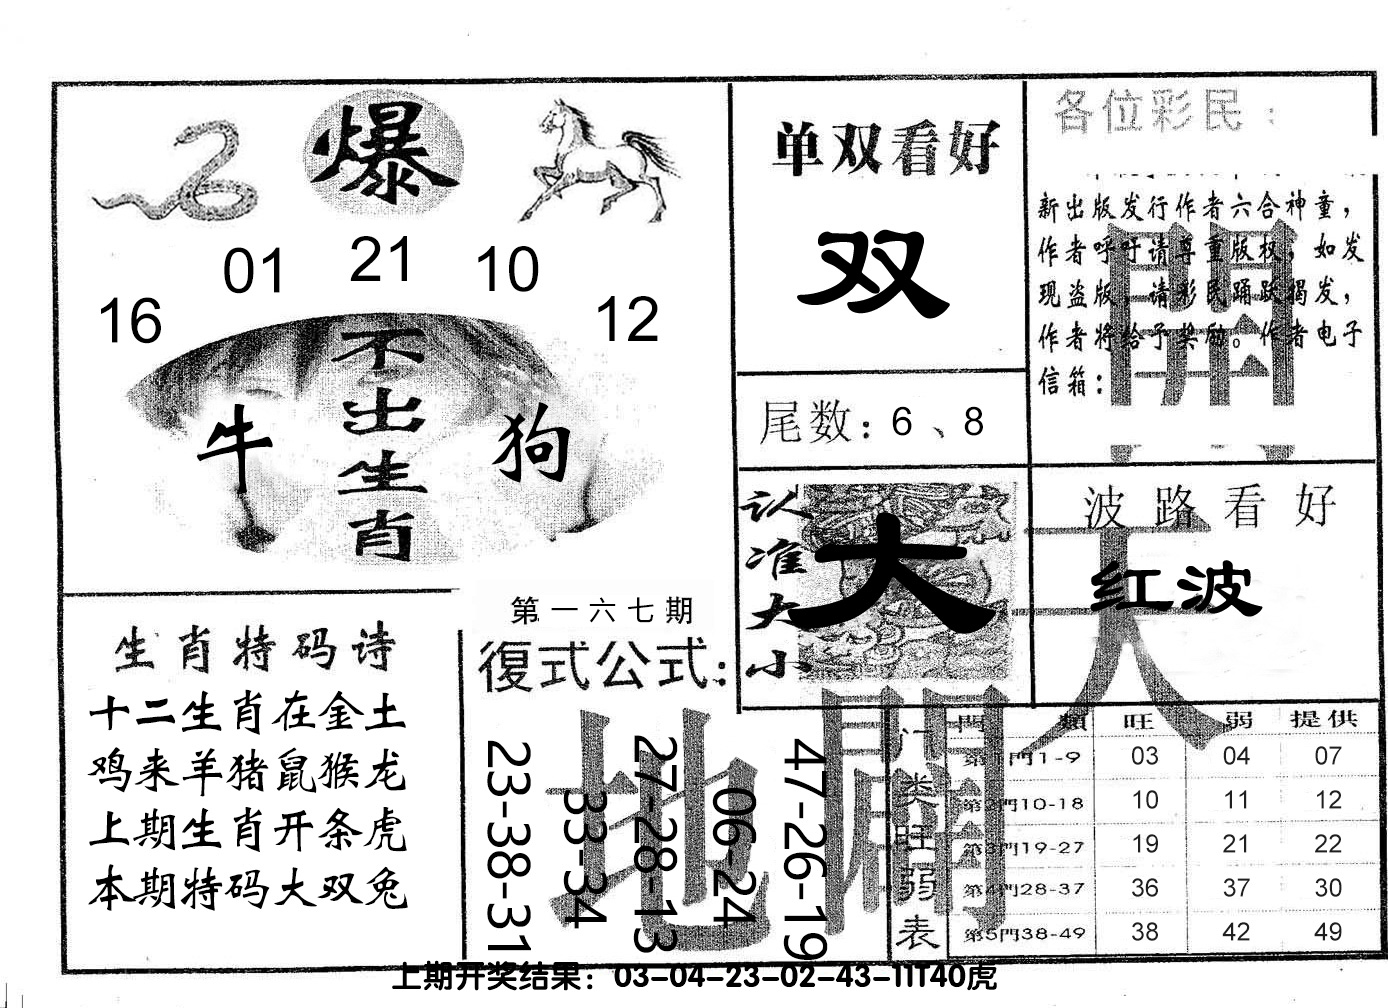 爆
01 21 10
16 12
不出生肖
牛 狗
单双看好
双
尾数：6、8
各位彩民：
新出版发行作者六合神童，
作者呼吁请尊重版权，如发
现盗版，请彩民踊跃揭发，
作者将给予奖励。作者电子
信箱：
開
认准大小
大
波路看好
红波
天
生肖特码诗
十二生肖在金土
鸡来羊猪鼠猴龙
上期生肖开条虎
本期特码大双兔
第一六七期
復式公式：
23-38-31
33-34
27-28-13
06-24
47-26-19
地
闢
门类旺弱表
門類 旺 弱 提供
第1門1-9 03 04 07
第2門10-18 10 11 12
第3門19-27 19 21 22
第4門28-37 36 37 30
第5門38-49 38 42 49
上期开奖结果：03-04-23-02-43-11T40虎